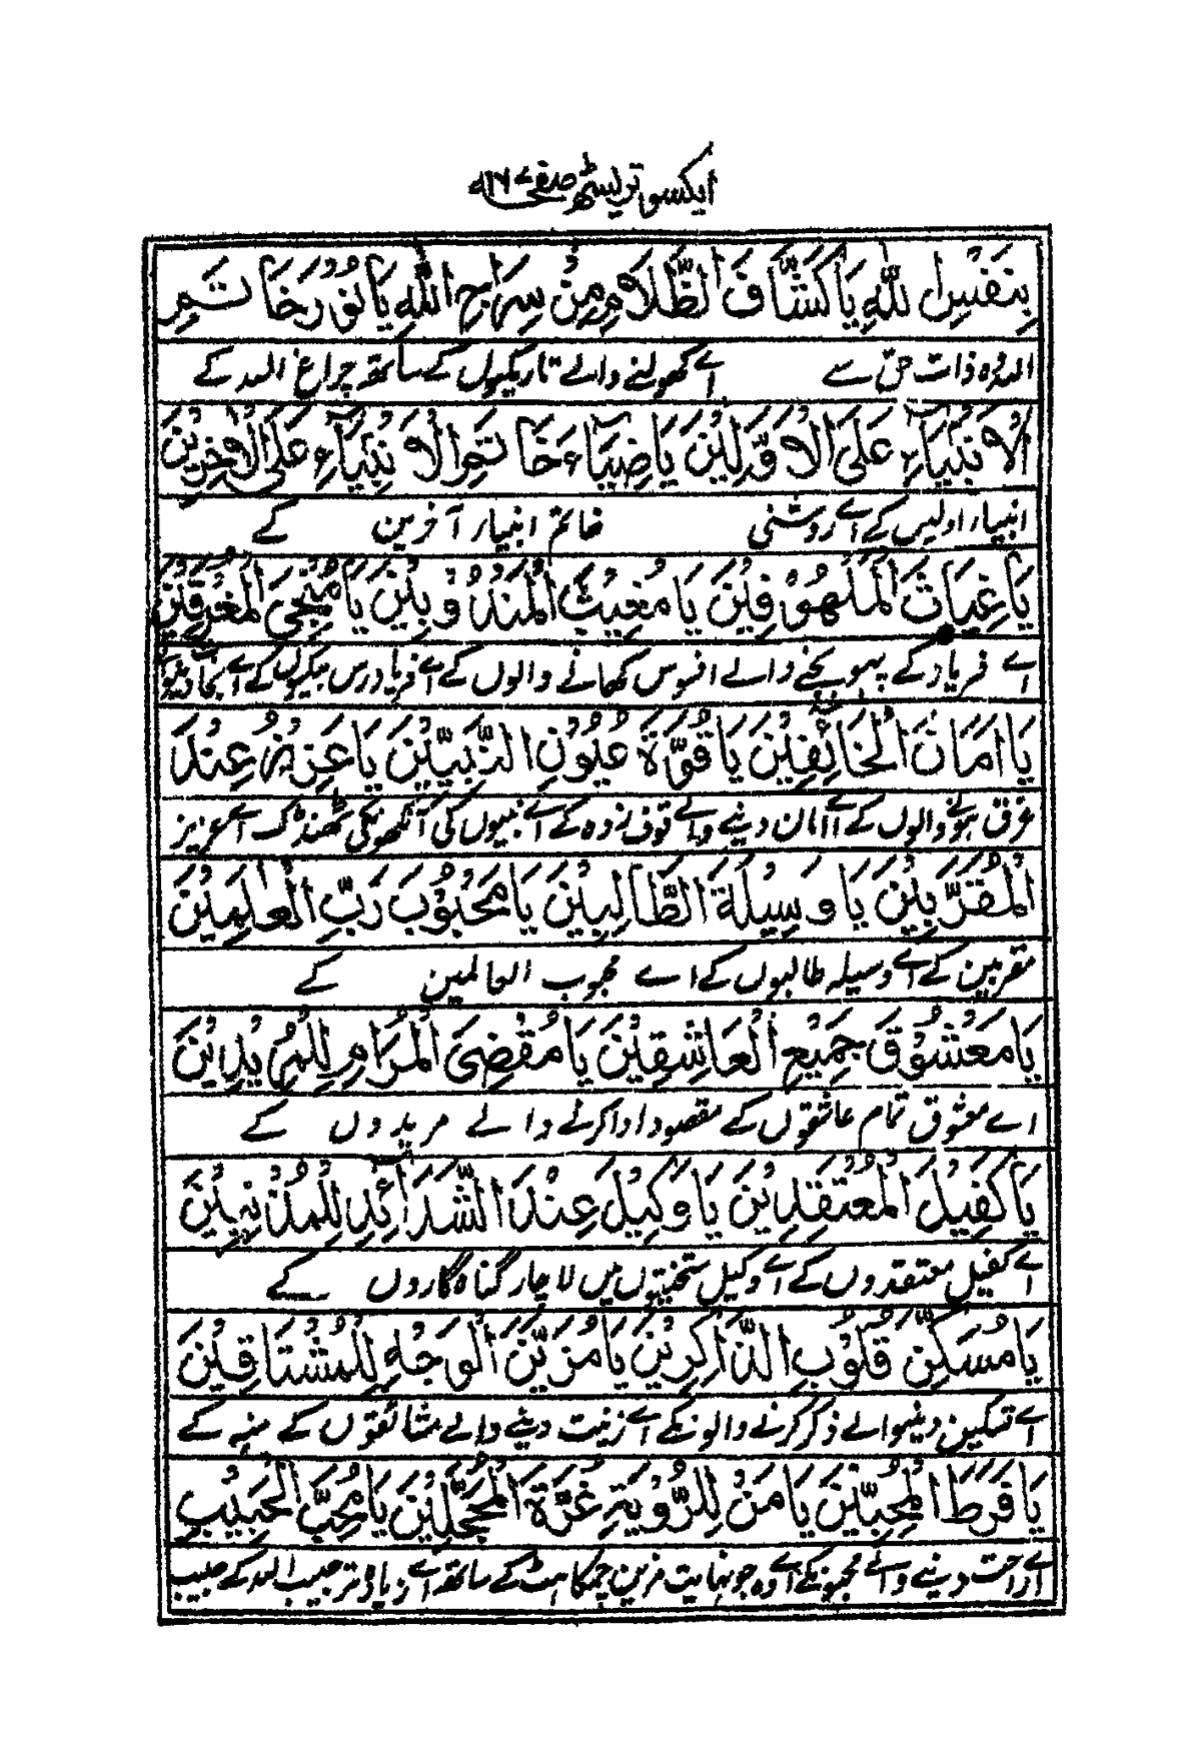 ایکسو ترلیسٹھ صفحے ۹۱۷
بِنَفْسِ اللّٰهِ يَا كَشَّافَ الظَّلَامِ مِنْ سِرَاجِ اللّٰهِ يَا نُوْرَ خَاتَمِ
ذات حق سے اے کھولنے والے تاریکیوں کے ساتھ چراغ اللہ کے
الْاَنْبِيَآءِ عَلَى الْاَوَّلِيْنَ يَا ضِيَآءَ خَاتَمِ الْاَنْبِيَآءِ عَلَى الْاٰخِرِيْنَ
انبیاء اولیں کے اے روشنی خاتم انبیاء آخرین کے
يَا غِيَاثَ الْمَلْهُوْفِيْنَ يَا مُغِيْثَ الْمَنْدُوْبِيْنَ يَا مُنْجِيَ الْمُغْرَقِيْنَ
اے فریاد کے پہونچنے والے افسوس کھانے والوں کے اے فریادرس بیکوں کے اے
يَا اَمَانَ الْخَائِفِيْنَ يَا قُرَّةَ عُيُوْنِ النَّبِيِّيْنَ يَا عَزِيْزُ عِنْدَ
غرق ہونے والوں کے اے امان دینے والے خوف زدہ کے اے نبیوں کی آنکھونکی ٹھنڈک اے عزیز
الْمُقَرَّبِيْنَ يَا وَسِيْلَةَ الطَّالِبِيْنَ يَا مَحْبُوْبَ رَبِّ الْعٰلَمِيْنَ
مقربین کے اے وسیلہ طالبوں کے اے محبوب العالمین کے
يَا مَعْشُوْقَ جَمِيْعِ الْعَاشِقِيْنَ يَا مُقْضِيَ الْمَرَامِ لِلْمُرِيْدِيْنَ
اے معشوق تمام عاشقوں کے مقصود ادا کرنے والے مریدوں کے
يَا كَفِيْلَ الْمُعْتَقِدِيْنَ يَا وَكِيْلَ عِنْدَ الشَّدَآئِدِ لِلْمُذْنِبِيْنَ
اے کفیل معتقدوں کے اے وکیل سختیوں میں لاچار گناہ گاروں کے
يَا مُسَكِّنَ قُلُوْبِ الذَّاكِرِيْنَ يَا مُزَيِّنَ الْوَجْهِ لِلْمُشْتَاقِيْنَ
اے تسکین دینیوالے ذکر کرنے والونکے اے زینت دینے والے مشتاقوں کے منہ کے
يَا فَرَطَ الْمُحِبِّيْنَ يَا مَنْ لِلرُّوْيَةِ غُرَّةَ الْمُحَجَّلِيْنَ يَا مُحِبَّ الْحَبِيْبِ
اے راحت دینے والے محبونکے اے وہ جو نہایت مزین چمکاہٹ کے ساتھ اے زیادہ تر حبیب اللہ کے حبیب